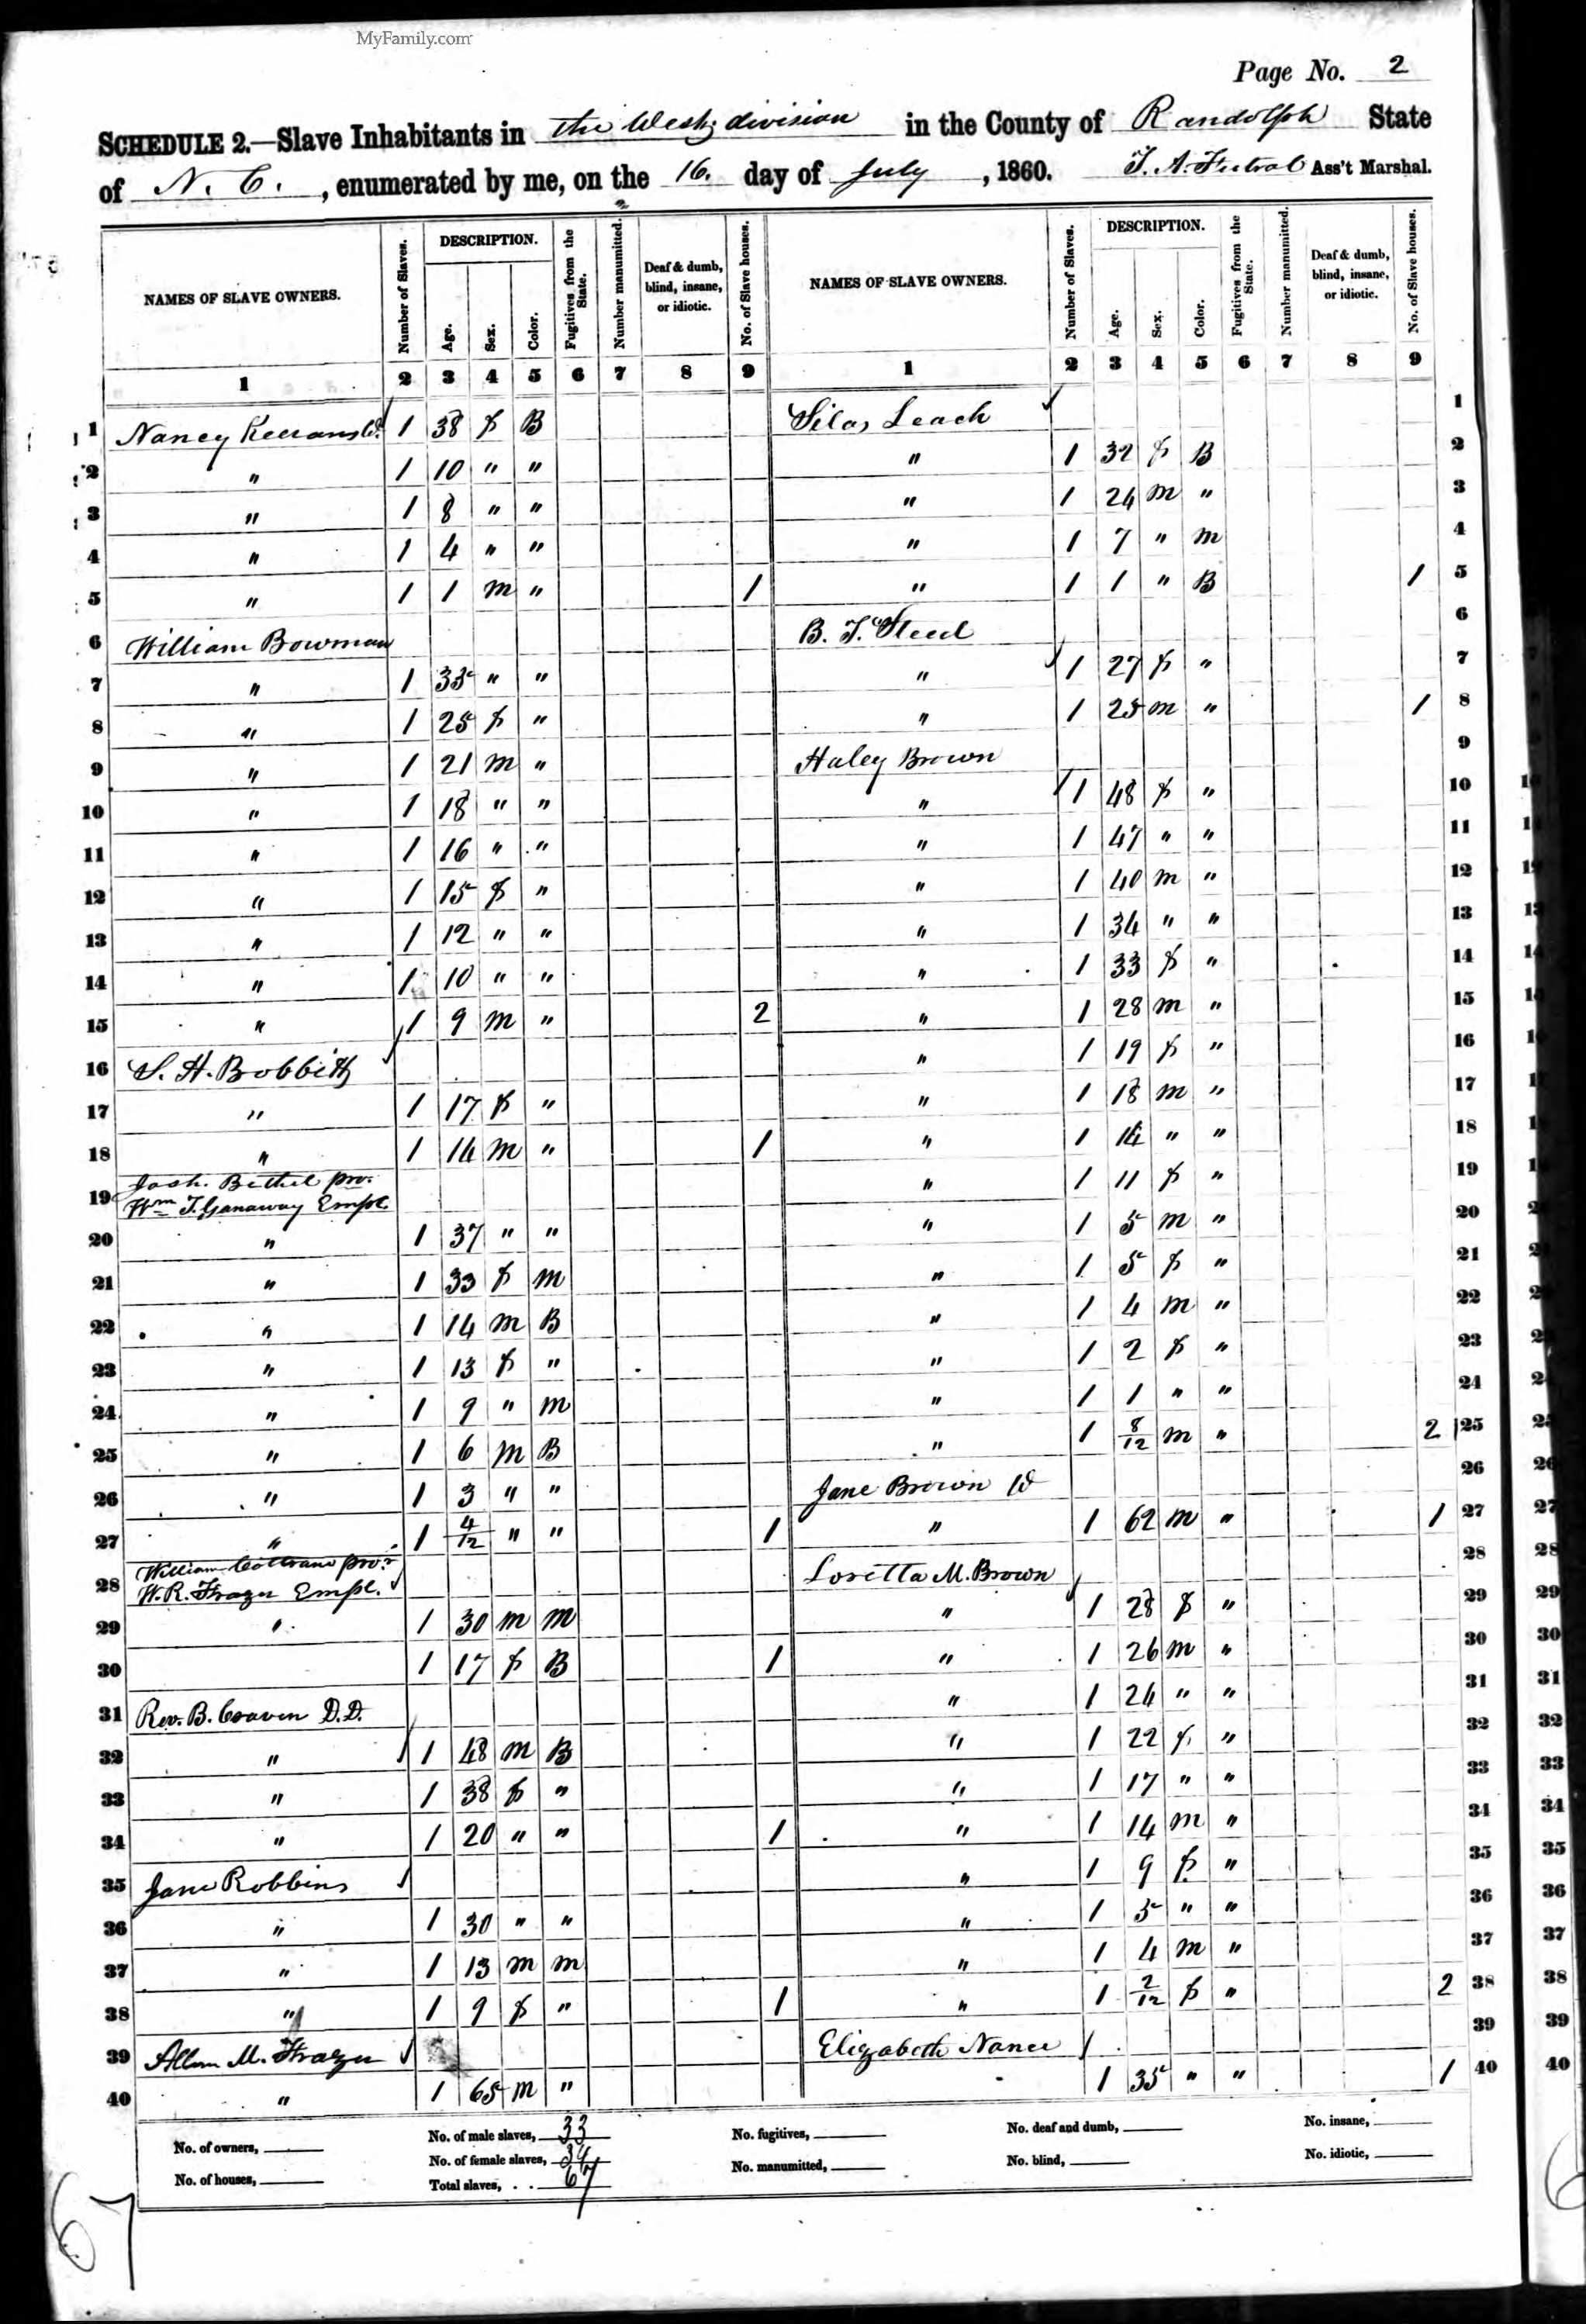 MyFamily.com
Page No. 2
SCHEDULE 2.—Slave Inhabitants in the West division in the County of Randolph State
of N. C., enumerated by me, on the 16. day of July, 1860. Ass't Marshal.
NAMES OF SLAVE OWNERS. Number of Slaves. DESCRIPTION. Age. Sex. Color. Fugitives from the State. Number manumitted. Deaf & dumb, blind, insane, or idiotic. No. of Slave houses. NAMES OF SLAVE OWNERS. Number of Slaves. DESCRIPTION. Age. Sex. Color. Fugitives from the State. Number manumitted. Deaf & dumb, blind, insane, or idiotic. No. of Slave houses.
1 2 3 4 5 6 7 8 9 1 2 3 4 5 6 7 8 9
1 Nancy 1 38 f B Silas Leach 1
2 " 1 10 " " " 1 32 f B 2
3 " 1 8 " " " 1 24 m " 3
4 " 1 4 " " " 1 7 " m 4
5 " 1 1 m " 1 " 1 1 " B 1 5
6 William Bowman B. F. Steed 6
7 " 1 33 " " " 1 27 f " 7
8 " 1 25 f " " 1 25 m " 1 8
9 " 1 21 m " Haley Brown 9
10 " 1 18 " " " 1 48 f " 10
11 " 1 16 " " " 1 47 " " 11
12 " 1 15 f " " 1 40 m " 12
13 " 1 12 " " " 1 34 " " 13
14 " 1 10 " " " 1 33 f " 14
15 " 1 9 m " 2 " 1 28 m " 15
16 S. H. Bobbitt " 1 19 f " 16
17 " 1 17 f " " 1 18 m " 17
18 " 1 14 m " 1 " 1 14 " " 18
19 Josh. Bethel pro. Wm T. Ganaway Empl. " 1 11 f " 19
20 " 1 37 " " " 1 5 m " 20
21 " 1 33 f m " 1 5 f " 21
22 " 1 14 m B " 1 4 m " 22
23 " 1 13 f " " 1 2 f " 23
24 " 1 9 " m " 1 1 " " 24
25 " 1 6 m B " 1 8/12 m " 2 25
26 " 1 3 " " Jane Brown 26
27 " 1 4/12 " " 1 " 1 62 m " 1 27
28 William Coltrane pro. W. R. Frazer Empl. Loretta M. Brown 28
29 " 1 30 m m " 1 28 f " 29
30 1 17 f B 1 " 1 26 m " 30
31 Rev. B. Craven D.D. " 1 24 " " 31
32 " 1 48 m B " 1 22 f " 32
33 " 1 38 f " " 1 17 " " 33
34 " 1 20 " " 1 " 1 14 m " 34
35 Jane Robbins " 1 9 f " 35
36 " 1 30 " " " 1 5 " " 36
37 " 1 13 m m " 1 4 m " 37
38 " 1 9 f " 1 " 1 2/12 f " 2 38
39 Allen M. Frazer Elizabeth Nance 39
40 " 1 65 m " 1 35 " " 1 40
No. of owners, No. of male slaves, 33 No. fugitives, No. deaf and dumb, No. insane,
No. of houses, No. of female slaves, 34 No. manumitted, No. blind, No. idiotic,
Total slaves, . . 67
67